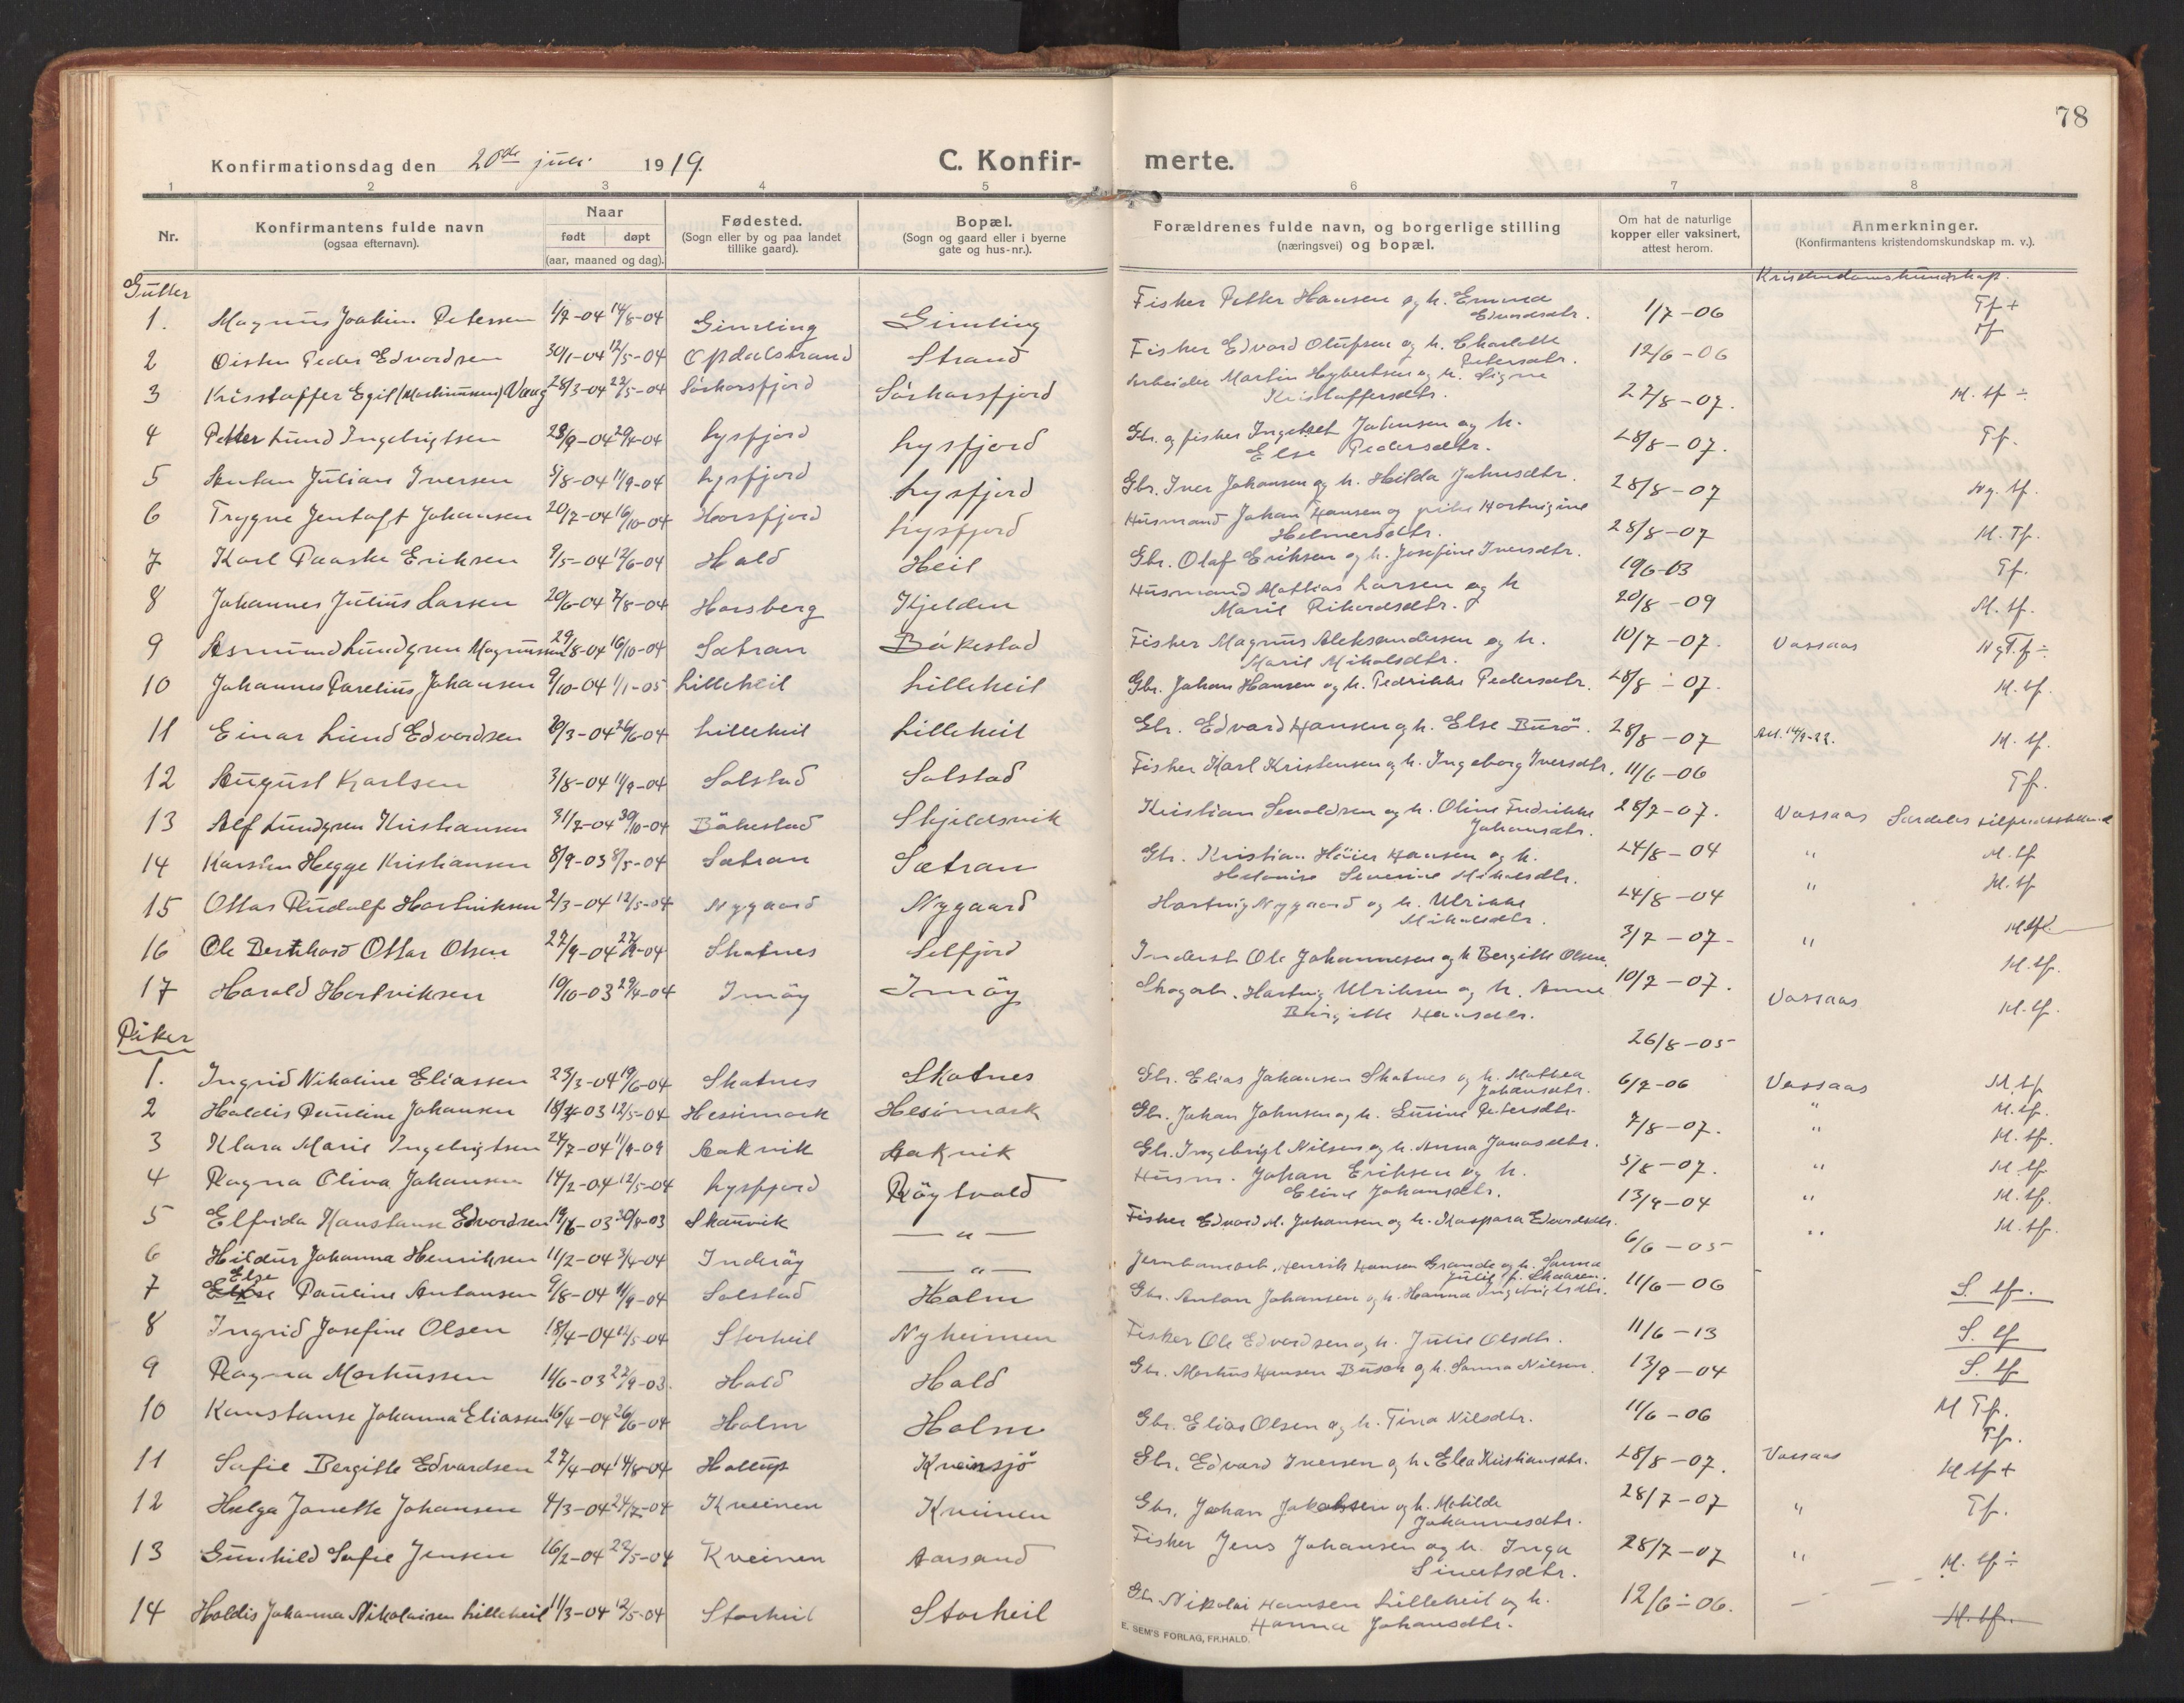 78
Konfirmationsdag den 20de juli 1919.
C. Konfirmerte.
1 2 3 4 5 6 7 8
Nr.
Konfirmantens fulde navn (ogsaa efternavn).
Naar født døpt (aar, maaned og dag).
Fødested. (Sogn eller by og paa landet tillike gaard).
Bopæl. (Sogn og gaard eller i byerne gate og hus-nr.).
Forældrenes fulde navn, og borgerlige stilling (næringsvei) og bopæl.
Om hat de naturlige kopper eller vaksinert, attest herom.
Anmerkninger. (Konfirmantens kristendomskundskap m. v.).
Kristendomskundskap.
Gutter
1. Magnus Joakim Petersen 1/7-04 14/8-04 Gimling Gimling Fisker Petter Hansen og h. Emma Edvardsdtr. 1/7-06 Tf+
2 Øisten Peder Edvardsen 30/1-04 12/5-04 Opdalstrand Strand Fisker Edvard Olufsen og h. Charlotte Petersdtr. 12/6-06 tf
3 Kristoffer Egil (Martinussen) Vaag 28/3-04 22/5-04 Sörhorsfjord Sörhorsfjord Arbeider Martin Hybertsen og h. Signe Kristoffersdtr. 27/8-07. M. tf ÷
4 Petter Lund Ingebrigtsen Lysfjord Lysfjord Gbr. og fisker Johansen og h. Else Pedersdtr. 28/8-07. Tf.
5 Anton Julian Iversen 5/8-04 11/9-04 Lysfjord Lysfjord Gbr. Iver Johansen og h. Hilda Johnsdtr. 28/8-07 Ng. tf.
6 Trygve Jentoft Johansen 20/7-04 16/10-04 Horsfjord Lysfjord Husmand Johan Hansen og pike Hartvigine Helmersdtr. 28/8-07 M. Tf.
7 Karl Paaske Eriksen 9/5-04 12/6-04 Hald Heil Gbr. Olaf Eriksen og h. Josefine Iversdtr. 19/6-03 Tf.
8 Johannes Julius Larsen 20/6-04 7/8-04 Horsberg Kjelden Husmand Mathias Larsen og h Marie Rikardsdtr. 20/8-09 M. tf.
9 Asmund Lundgren Magnussen 29/8-04 16/10-04 Sætran Bökestad Fisker Magnus Aleksandersen og h. Marie Mikalsdtr. 10/7-07. Vassaas Ng Tf ÷
10 Johannes Parelius Johansen 9/10-04 1/1-05 Lilleheil Lilleheil Gbr. Johan Hansen og h. Pedrikke Pedersdtr. 28/8-07. M. tf.
11 Einar Lund Edvardsen 20/3-04 26/6-04 Lilleheil Lilleheil Gbr. Edvard Hansen og h. Else Burö. 28/8-07 Att. 14/9-22. M. tf.
12 August Karlsen 3/8-04 11/9-04 Solstad Solstad Fisker Karl Kristensen og h. Ingeborg Iversdtr. 11/6-06 Tf.
13 Alf Lundgren Kristiansen 31/7-04 30/10-04 Bökestad Skjelsvik Kristian og h. Oline Fredrikke Johansdtr. 28/7-07. Vassaas Særdeles tilfredsstillende
14 Karsten Helgge Kristiansen 8/9-03 8/5-04 Sætran Sætran Gbr. Kristian Höier Hansen og h. Severine Mikalsdtr. 24/8-04 " M. tf
15 Ottar Rudolf Hartviksen 2/3-04 12/5-04 Nygaard Nygaard Hartvig Nygaard og h. Ulrikke Mikalsdtr. 24/8-04 " M. tf
16 Ole Bernhard Ottar Olsen 27/9-04 Skatnes Selfjord Inderst Ole Johannesen og h Bergitte Olsen. 3/7-07- " M. tf.
17 Harald Hartviksen 19/10-03 29/4-04 Imöy Imöy Skogarb. Hartvig Ulriksen og h. Anna Birgitte Hansdtr. 10/7-07. Vassaas M. tf.
26/8-05
Piker
1. Ingrid Nikoline Eliassen 23/3-04 19/6-04 Skatnes Skatnes Gbr. Elias Johansen Skatnes og h. Mathea Johansdtr. 6/7-06 Vassaas M. tf
2 Haldis Pauline Johansen 12/5-04 Hesimark Hesimark Gbr. Johan Johnsen og h. Petersdtr. 7/8-07. " M. tf.
3 Klara Marie Ingebrigtsen 24/7-04 11/9-09 Aakvik Aakvik Gbr. Ingebrigt Nilsen og h. Anna Jonasdtr. 5/8-07. " M. tf.
4 Ragna Oliva Johansen 14/2-04 12/5-04 Lysfjord Röytvold Husm. Johan Eriksen og h. Eline Johansdtr. 13/9-04 " M. tf
5 Elfrida Konstanse Edvardsen 30/8-03 Skauvik — " — Fisker Edvard M. Johansen og h. Kaspara Edvardsdtr. 6/6-05 " M. tf.
6 Hildur Johanna Henriksen 11/2-04 3/4-04 Inderöy — " — Jernbanearb. Henrik Hansen Grande og h. Sanna Julie f. Skaaren. 11/6-06 " M. tf.
7 Else Pauline Antonsen 9/8-04 11/9-04 Solstad Holm Gbr. Anton Johansen og h. Hanna Ingebrigtsdtr. S. tf.
8 Ingrid Josefine Olsen 18/4-04 12/5-04 Storheil Nyheimen Fisker Ole Edvardsen og h. Julie Olsdtr. 11/6-13 S. tf
9 Ragna Markussen 11/6-03 27/9-03. Hald Hald Gbr. Markus Hansen Busch og h. Sanna Nilsen. 13/9-04 S. tf
10 Konstanse Johanna Eliassen 16/4-04 26/6-04 Holm Holm Gbr. Elias Olsen og h. Tina Nilsdtr. 11/6-06 M Tf. Tf.
11 Sofie Bergitte Edvardsen 27/4-04 14/8-04 Holtup Kveinsjö Gbr. Edvard Iversen og h. Elea Kristiansdtr. 28/8-07. Vassaas M tf +
12 Helga Janette Johansen 4/3-04 24/7-04 Kveinen Kveinen Gbr. Johan Jakobsen og h. Matilde Johannesdtr. 28/7-07 " Tf.
13 Gunhild Sofie Jensen 16/2-04 22/5-04 Kveinen Aarsand Fisker Jens Johansen og h. Inga Sivertsdtr. 28/7-07 " M. tf ÷
14 Haldis Johanna Nikolaisen Lilleheil 11/3-04 12/5-04 Storheil Storheil Gbr Nikolai Hansen Lilleheil og h. Hanna Johansdtr. 12/6-06. — M. tf.
E. SEM'S FORLAG, FR.HALD.